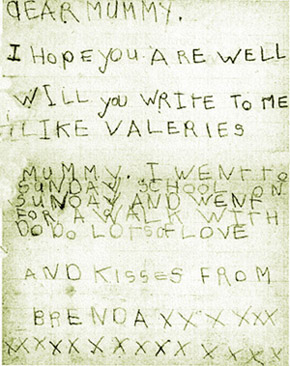 DEAR MUMMY.
I HOPE you ARE WELL
WILL you WRITE TO ME
I LIKE VALERIES
MUMMY. I WENT TO
SUNDAY SCHOOL ON
SUNDAY AND WENT
FOR A WALK WITH
DODO LOTS of LOVE
AND KISSES FROM
BRENDA XX X XXX
XXXXXXXXX X XXX